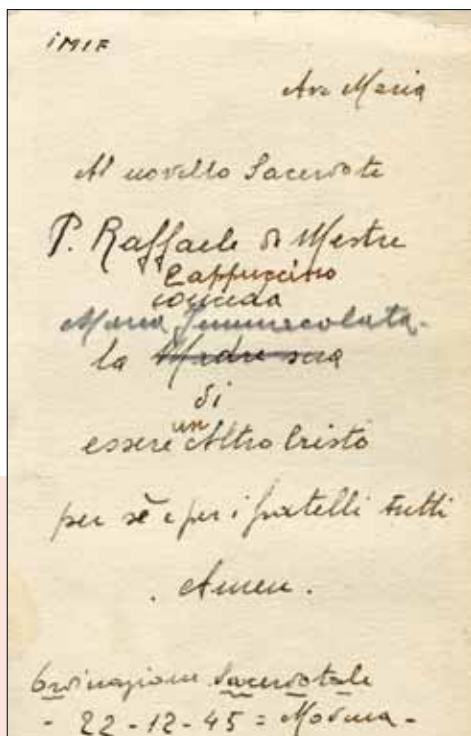 IMIF
Ave Maria
Al novello Sacerdote
P. Raffaele da Mestre
Cappuccino
conceda
Maria Immacolata -
la Madre sua
di
essere un Altro Cristo
per sé e per i fratelli tutti
. Amen .
Ordinazione Sacerdotale
- 22-12-45 = Modena -